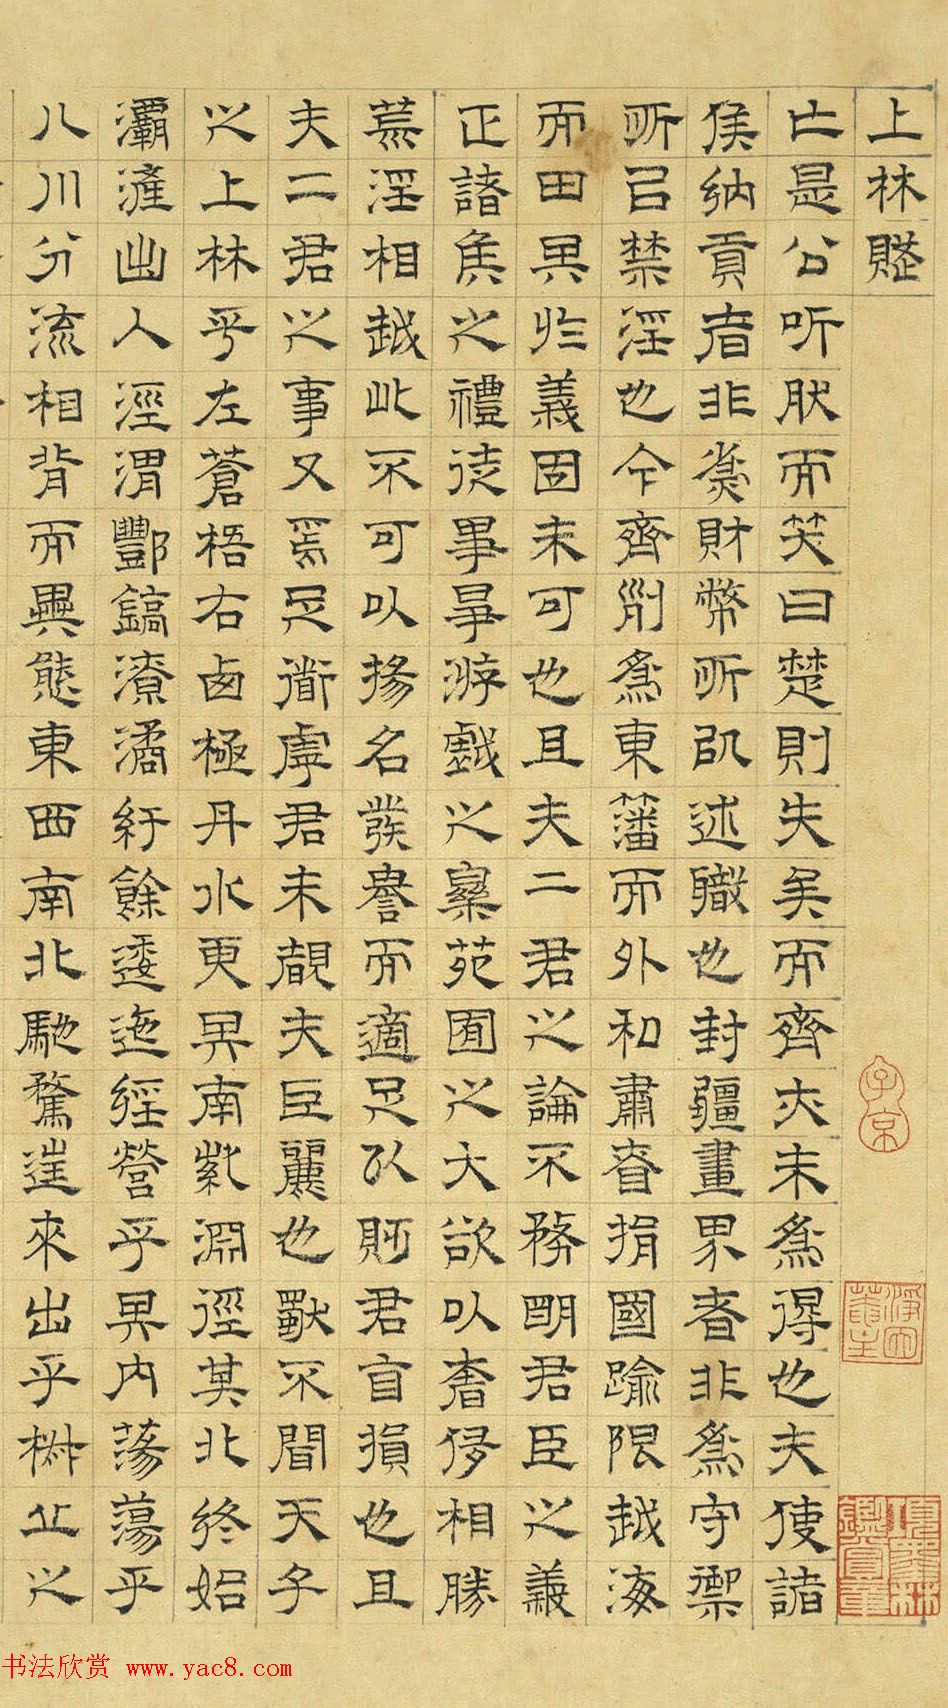 上林賦
亡是公听肰而笑曰楚則失矣而齊亦未爲得也夫使諸
侯納貢者非爲財幣所以述職也封疆畫界者非爲守禦
所㠯禁淫也今齊列爲東藩而外和肅眘捐國踰限越海
而田其於義固未可也且夫二君之論不務明君臣之義
正諸侯之禮徒事爭游戲之樂苑囿之大欲以奢侈相勝
荒淫相越此不可以揚名發譽而適足以貶君自損也且
夫二君之事又焉足道虖君未覩夫巨麗也獸不聞天子
之上林乎左蒼梧右西極丹水更其南紫淵徑其北終始
灞滻出入涇渭酆鎬潦潏紆餘逶迤經營乎其內蕩蕩乎
八川分流相背而異態東西南北馳騖往來出乎椒丘之
子京
淨因菴主
項墨林鑑賞章
书法欣赏 www.yac8.com